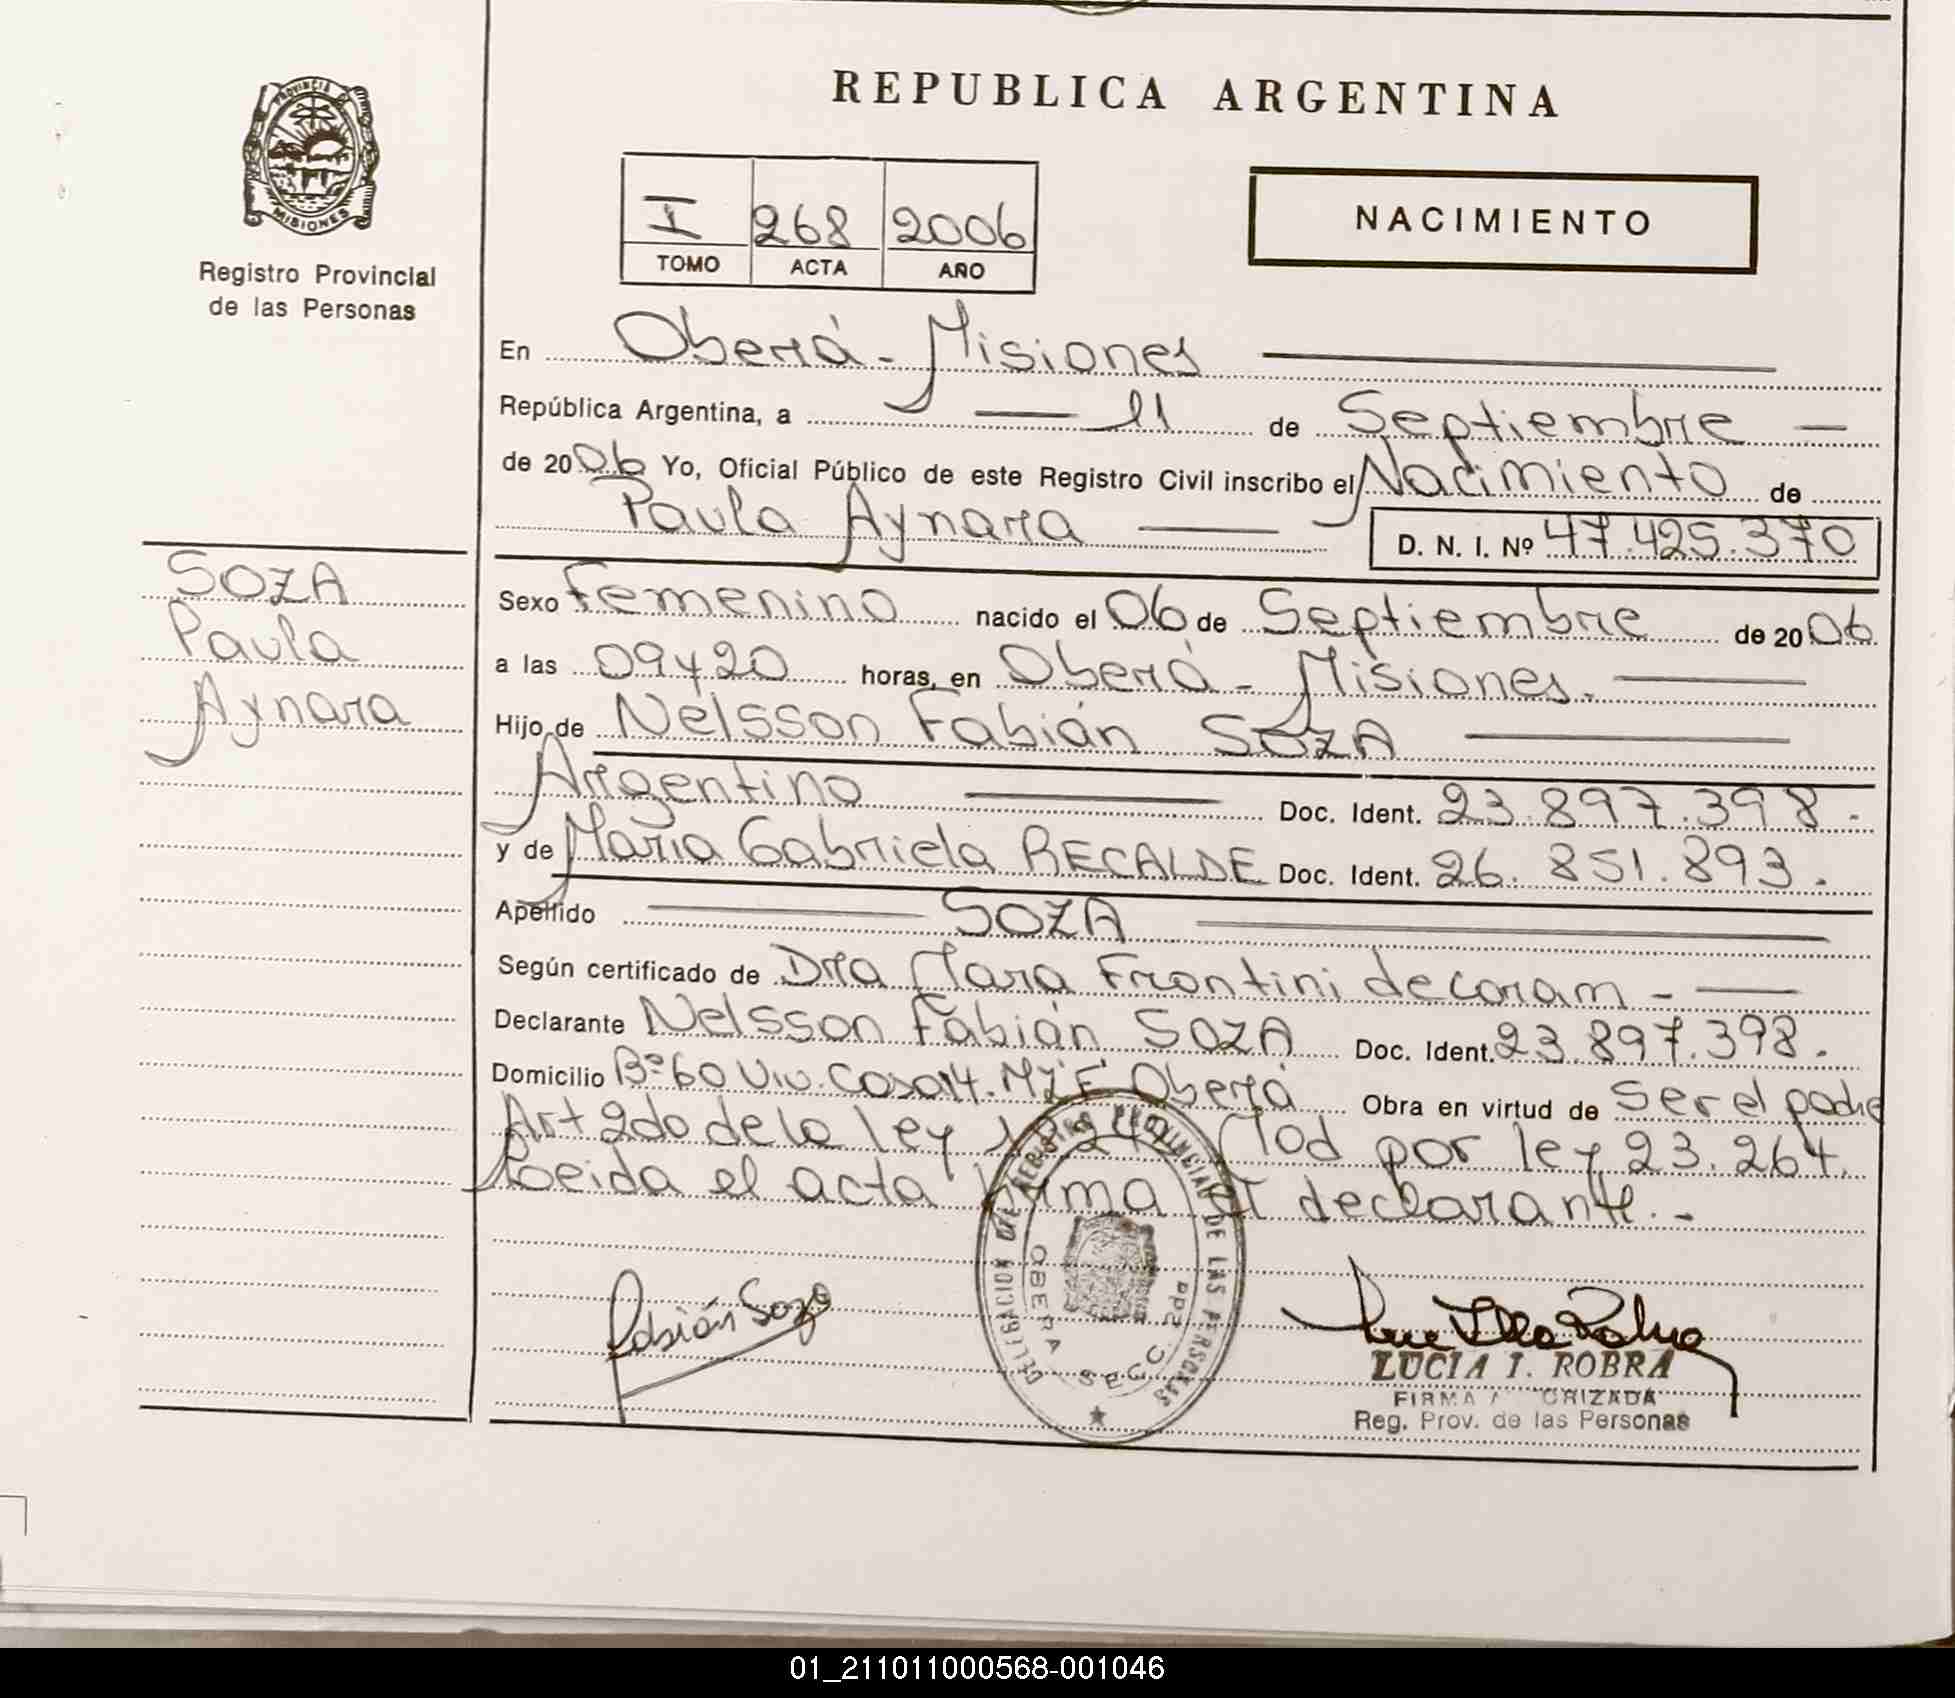 REPUBLICA ARGENTINA
PROVINCIA DE
MISIONES
Registro Provincial
de las Personas
I 268 2006
TOMO ACTA AÑO
NACIMIENTO
En Oberá - Misiones
República Argentina, a 11 de Septiembre
de 2006 Yo, Oficial Público de este Registro Civil inscribo el Nacimiento de
Paula Aynara D. N. I. Nº 47.425.370
SOZA
Paula
Aynara
Sexo Femenino nacido el 06 de Septiembre de 2006
a las 09y20 horas, en Oberá - Misiones.
Hijo de Nelsson Fabián SOZA
Argentino Doc. Ident. 23.897.398.
y de Maria Gabriela RECALDE Doc. Ident. 26.851.893.
Apellido SOZA
Según certificado de Dra Mara Frontini de coram -
Declarante Nelsson Fabián SOZA Doc. Ident. 23.897.398.
Domicilio Bº 60 Viv. Casa 14. MZ F Oberá Obra en virtud de ser el padre
Art 2do de la ley 18.248 Mod por ley 23.264.
Leida el acta firma el declarante.-
DELEGACION DEL REGISTRO PROVINCIAL DE LAS PERSONAS
OBERA SECC. 2da
Fabián Soza
LUCIA I. ROBRA
FIRMA A CRIZADA
Reg. Prov. de las Personas
01_211011000568-001046